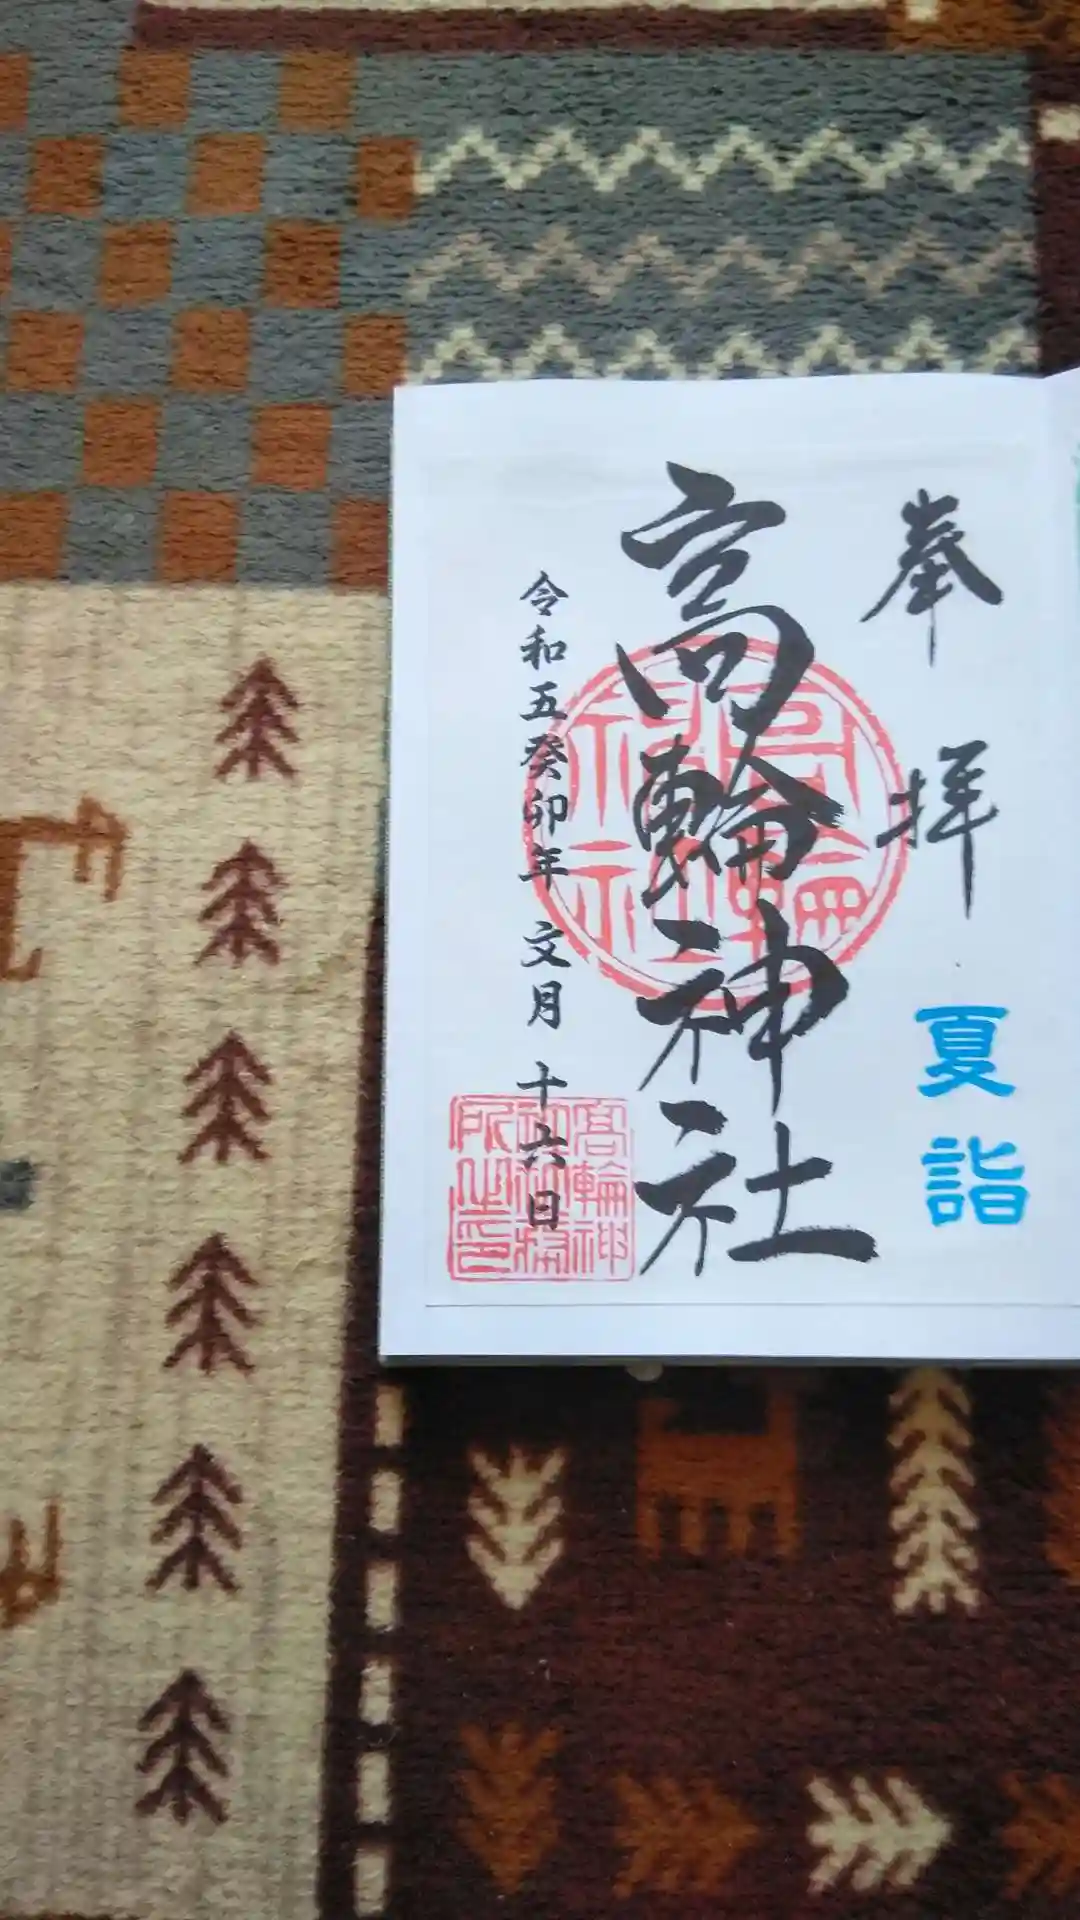 奉拝
夏詣
高輪神社
高輪神社
令和五癸卯年 文月 十六日
高輪神
所之印